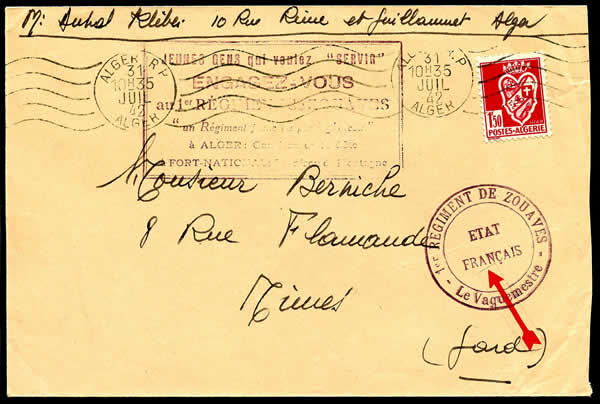 10 Rue et Guillaumet Alger
ALGER R.P.
31
10H35
JUIL
42
ALGER
JEUNES GENS qui voulez "SERVIR"
ENGAGEZ-VOUS
au 1er RÉGIMENT DE ZOUAVES
"un Régiment
à ALGER:
à FORT-NATIONAL:
31
10H35
JUIL
42
ALGER
1F50
POSTES-ALGERIE
Monsieur Berniche
8 Rue Flamande
Nimes
(Gard)
1er REGIMENT DE ZOUAVES
ETAT
FRANÇAIS
- Le Vaguemestre -